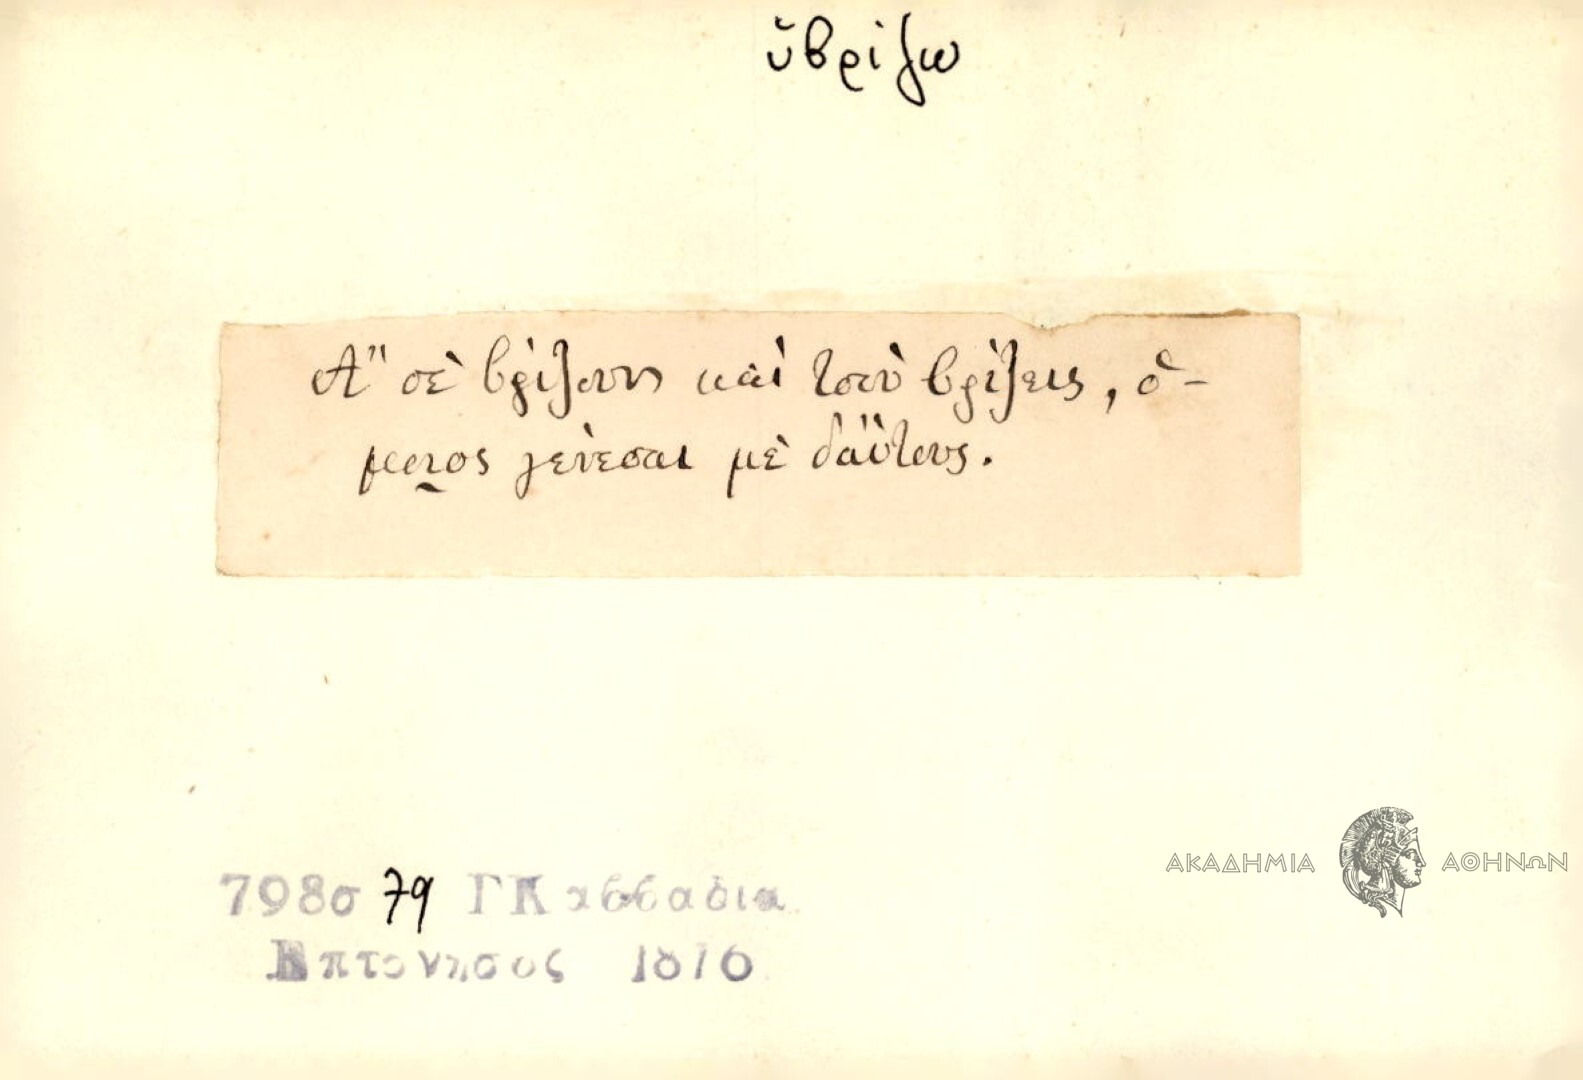 ὑβρίζω
Ἄ σὲ βρίζουν καὶ τσοὺ βρίζεις, ὅ-
μοιος γένεσαι μὲ δαύτους.
798σ 79 ΓΚαββαδία
Επτάνησος 1876
ΑΚΑΔΗΜΙΑ ΑΘΗΝΩΝ